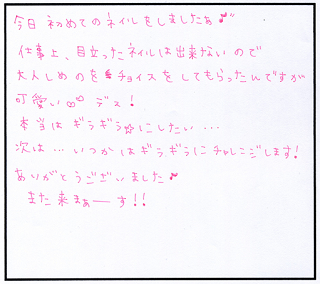 今日 初めてのネイルをしましたぁ♪
仕事上、目立ったネイルは出来ないので
大人しめのをチョイスをしてもらったんですが
可愛い♡♡デス！
本当はギラギラ☆にしたい...
次は...いつかはギラギラにチャレンジします！
ありがとうございました♪
また来まぁーす！！